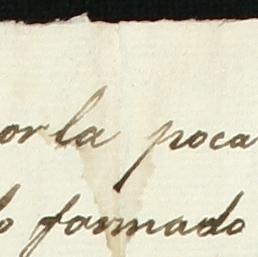 or la poca
o formado